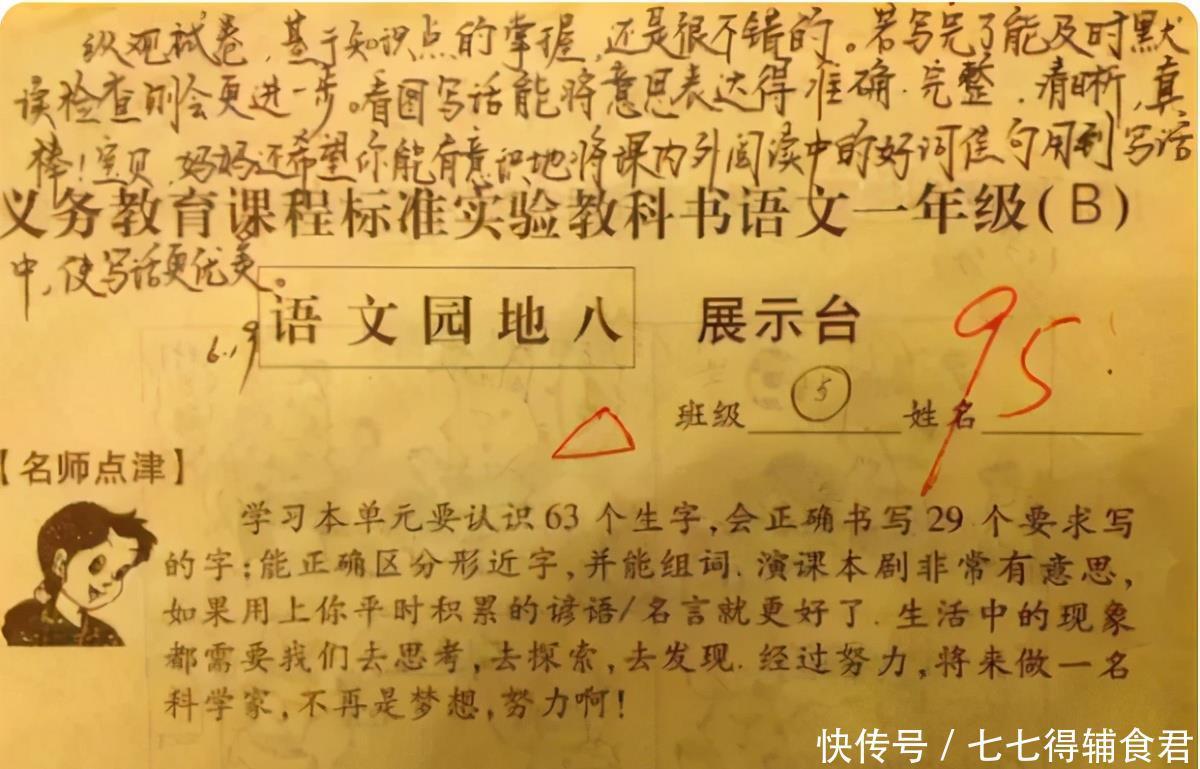 纵观试卷,基于知识点的掌握,还是很不错的。若写完了能及时默
读检查则会更进一步。看图写话能将意思表达得准确.完整.清晰,真
棒!宝贝,妈妈还希望你能有意识地将课内外阅读中的好词佳句用到写话
义务教育课程标准实验教科书语文一年级(B)
中,使写话更优美。
语文园地八 展示台
6.19
95
班级 5 姓名
【名师点津】
学习本单元要认识63个生字,会正确书写29个要求写
的字;能正确区分形近字,并能组词.演课本剧非常有意思,
如果用上你平时积累的谚语/名言就更好了.生活中的现象
都需要我们去思考,去探索,去发现.经过努力,将来做一名
科学家,不再是梦想,努力啊!
快传号/七七得辅食君